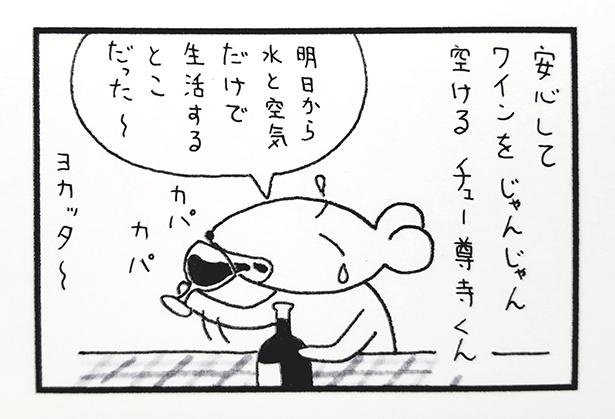 安心して
ワインをじゃんじゃん
空ける チュー尊寺くん
明日から
水と空気
だけで
生活する
とこ
だった〜
カパ
カパ
ヨカッタ〜